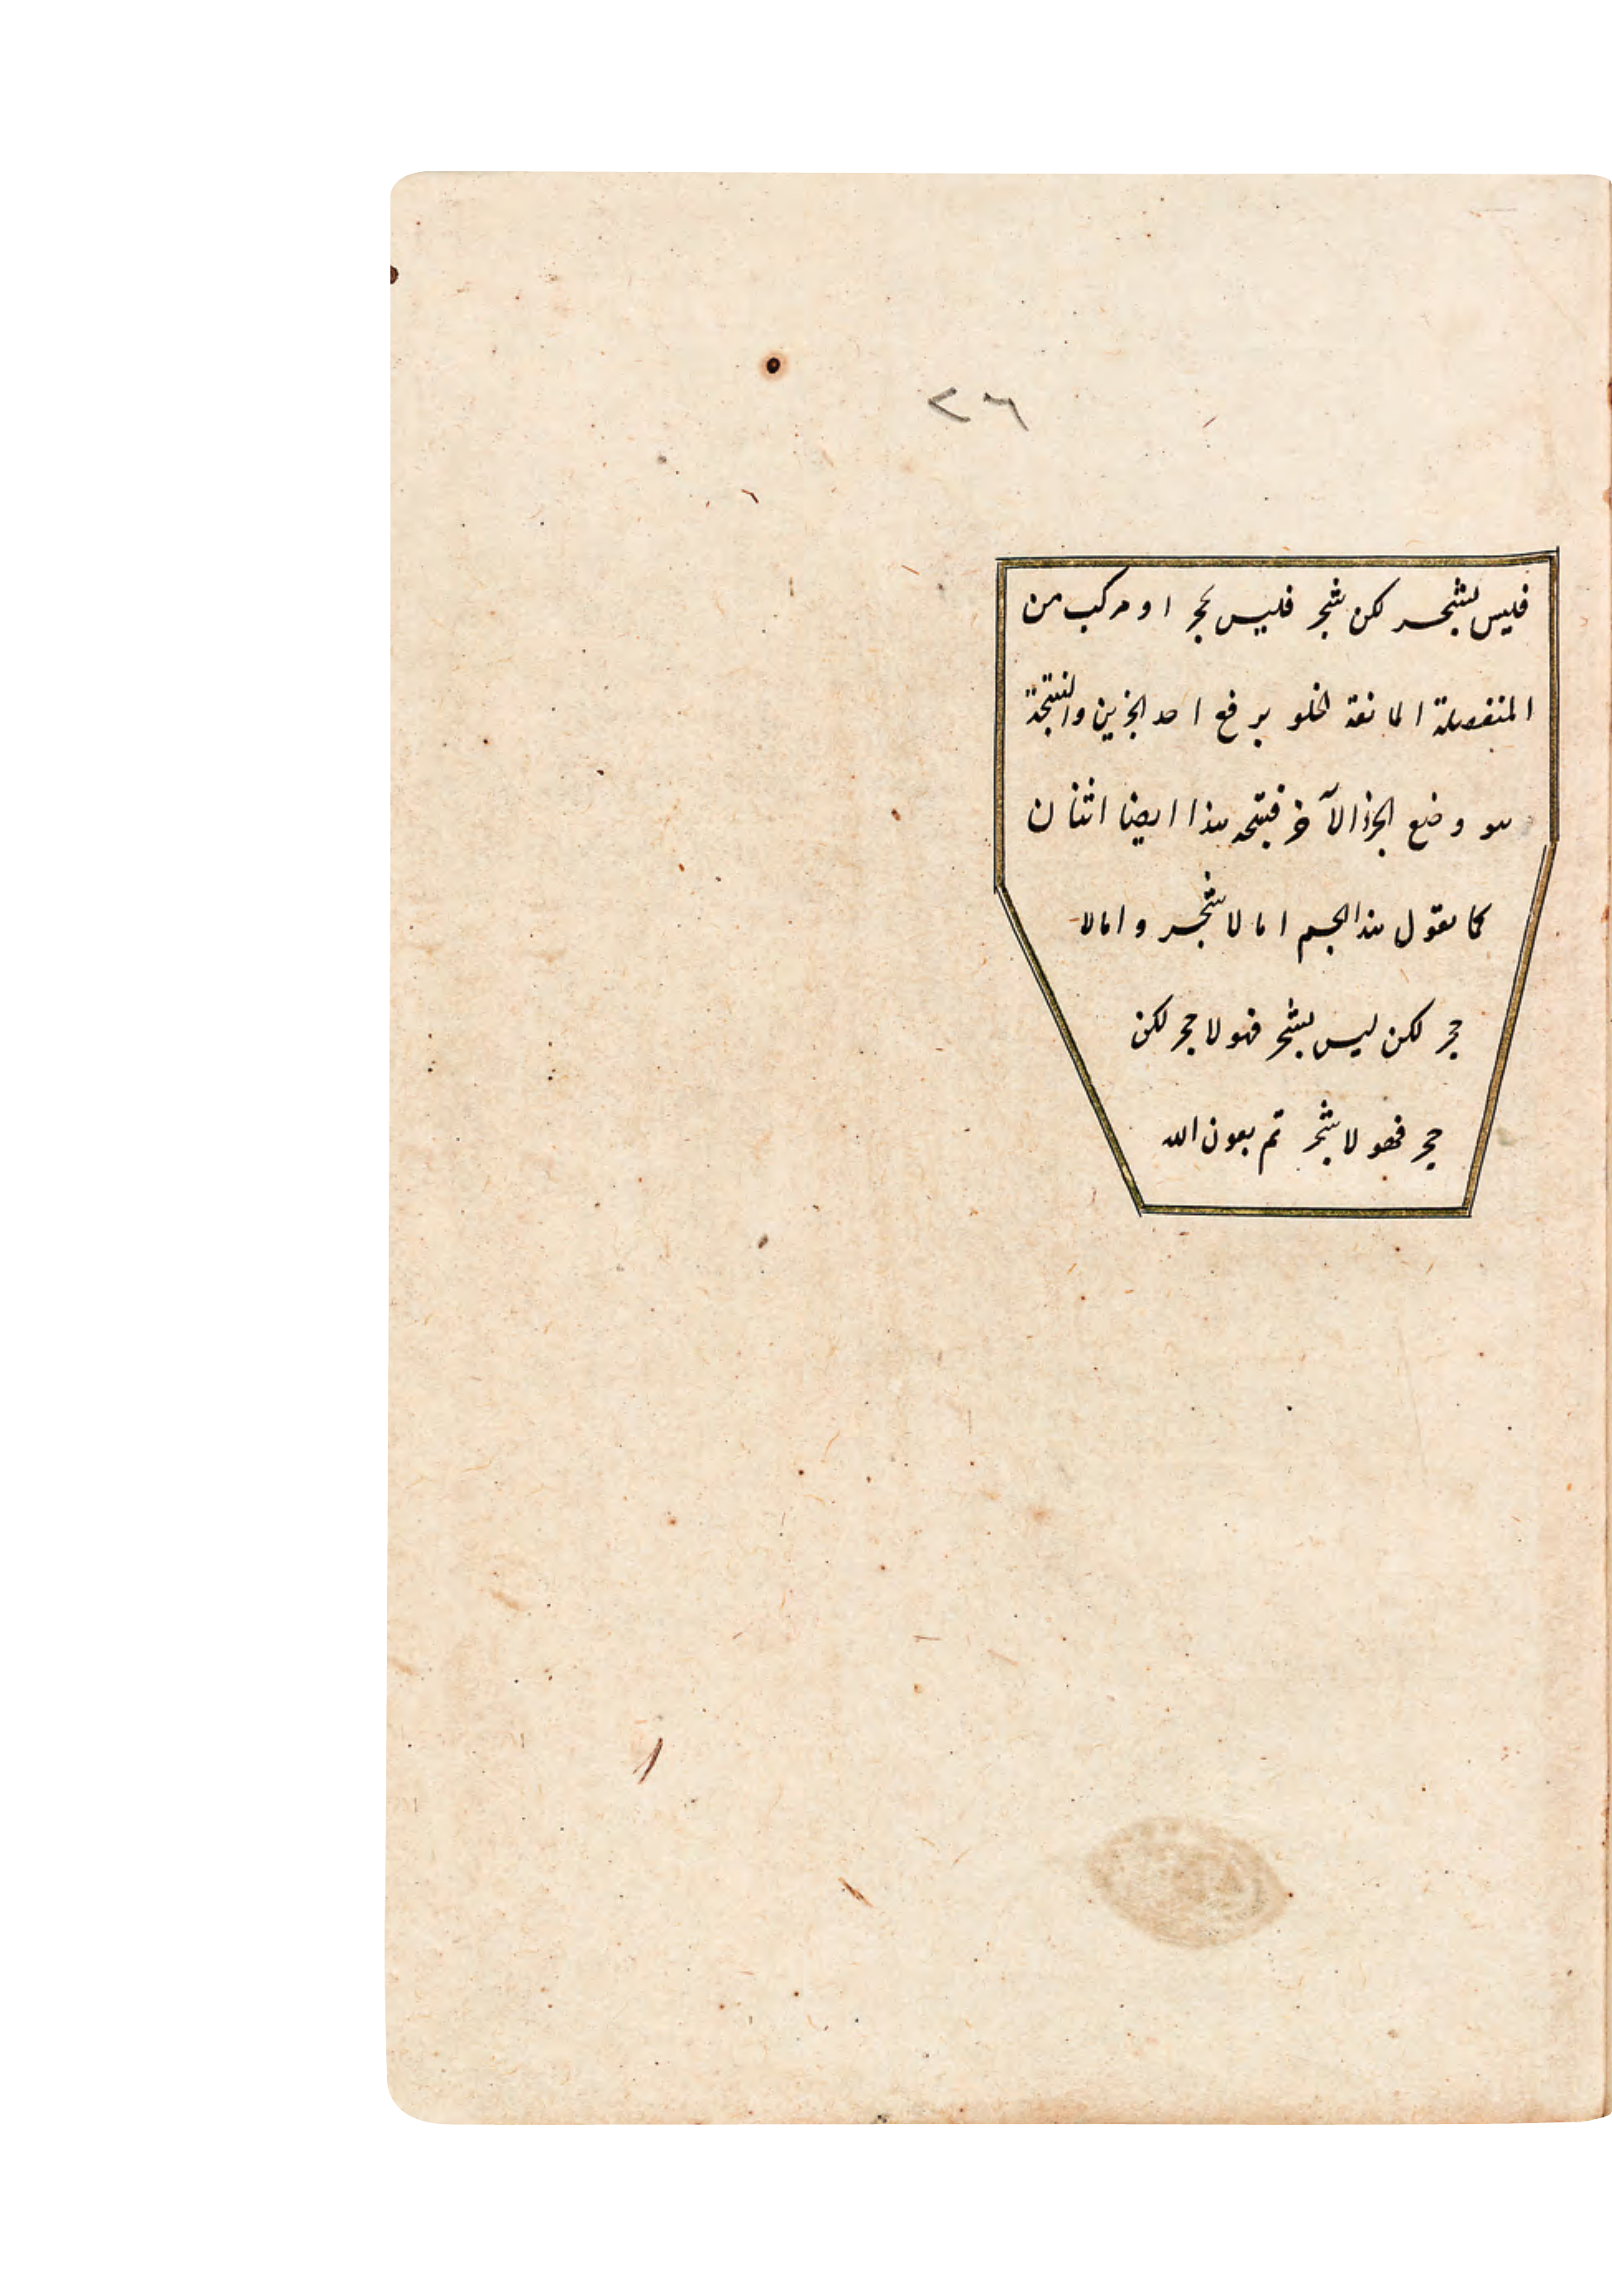 ٢٦
فليس بشجر لكن شجر فليس بحجر او مركب من
المنفصلة المانعة الخلو برفع احد الجزين والنتيجة
هو وضع الجزء الآخر فنتيجه هذا ايضا اثنان
كما نقول هذا الجسم اما لا شجر و اما لا
حجر لكن ليس بشجر فهو لا حجر لكن
حجر فهو لا شجر تم بعون الله